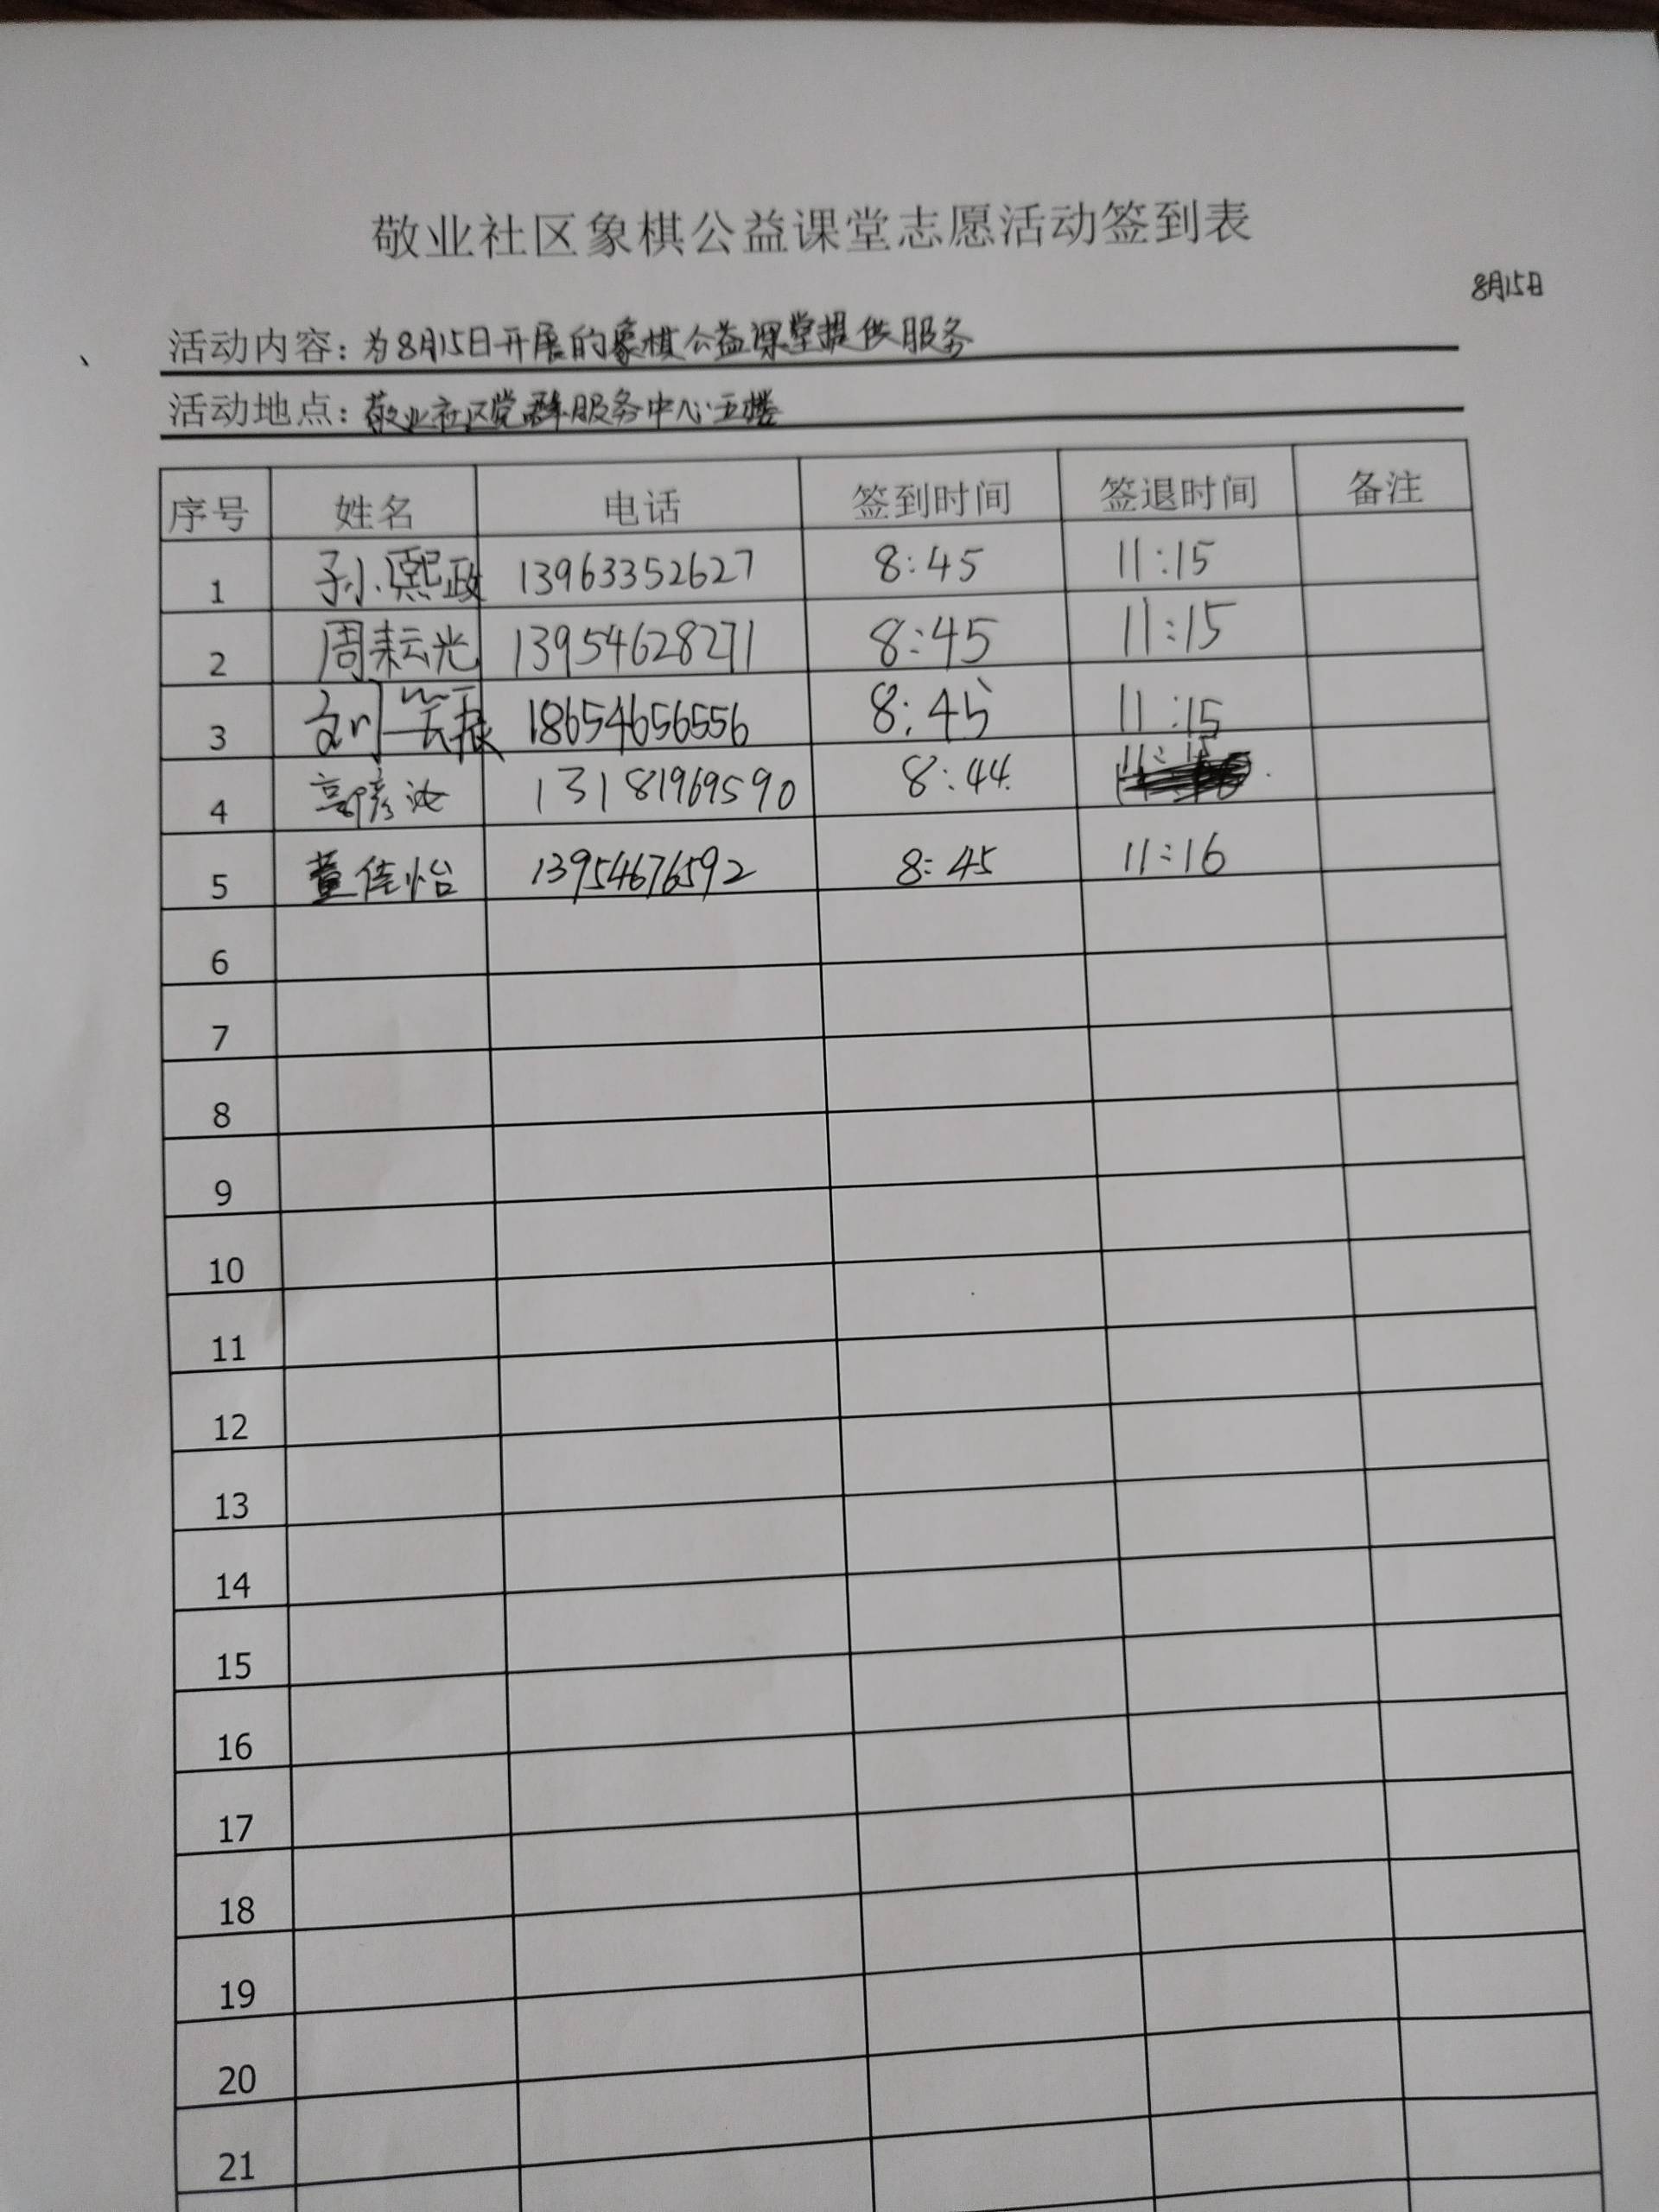 敬业社区象棋公益课堂志愿活动签到表
8月15日
活动内容：为8月15日开展的象棋公益课堂提供服务
活动地点：敬业社区党群服务中心五楼
序号 姓名 电话 签到时间 签退时间 备注
1 孙熙政 13963352627 8:45 11:15
2 周耘光 13954628271 8:45 11:15
3 刘 18654656556 8:45 11:15
4 13181969590 8:44 11:15
5 董佳怡 13954676592 8:45 11:16
6
7
8
9
10
11
12
13
14
15
16
17
18
19
20
21